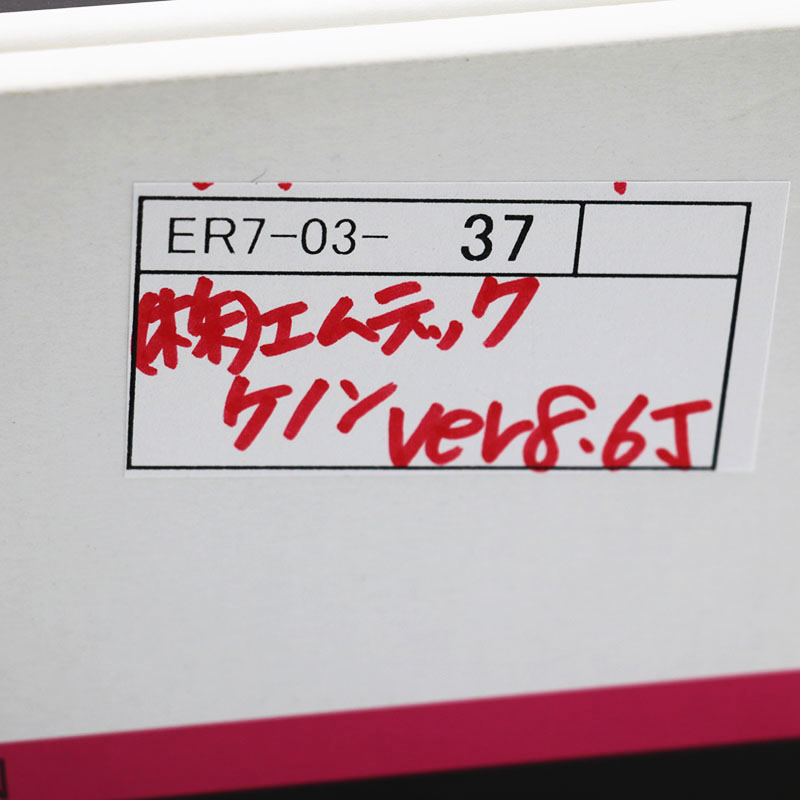 ER7-03- 37
(株)エムテック
ケノン ver8.6J